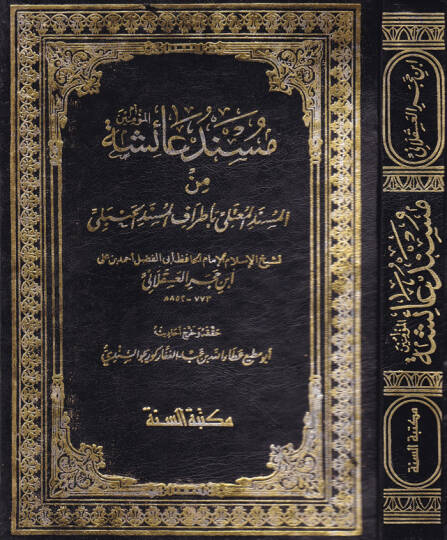 مسند أم المؤمنين عائشة
من
المسند المعتلي بأطراف المسند الحنبلي
لشيخ الإسلام الإمام الحافظ أبي الفضل أحمد بن علي
ابن حجر العسقلاني
٧٧٣ - ٨٥٢ هـ
حققه وخرج أحاديثه
أبو مطيع عطاء الله بن عبد الغفار كوريجو السندي
مكتبة السنة
ابن حجر العسقلاني
مسند أم المؤمنين عائشة
مكتبة السنة